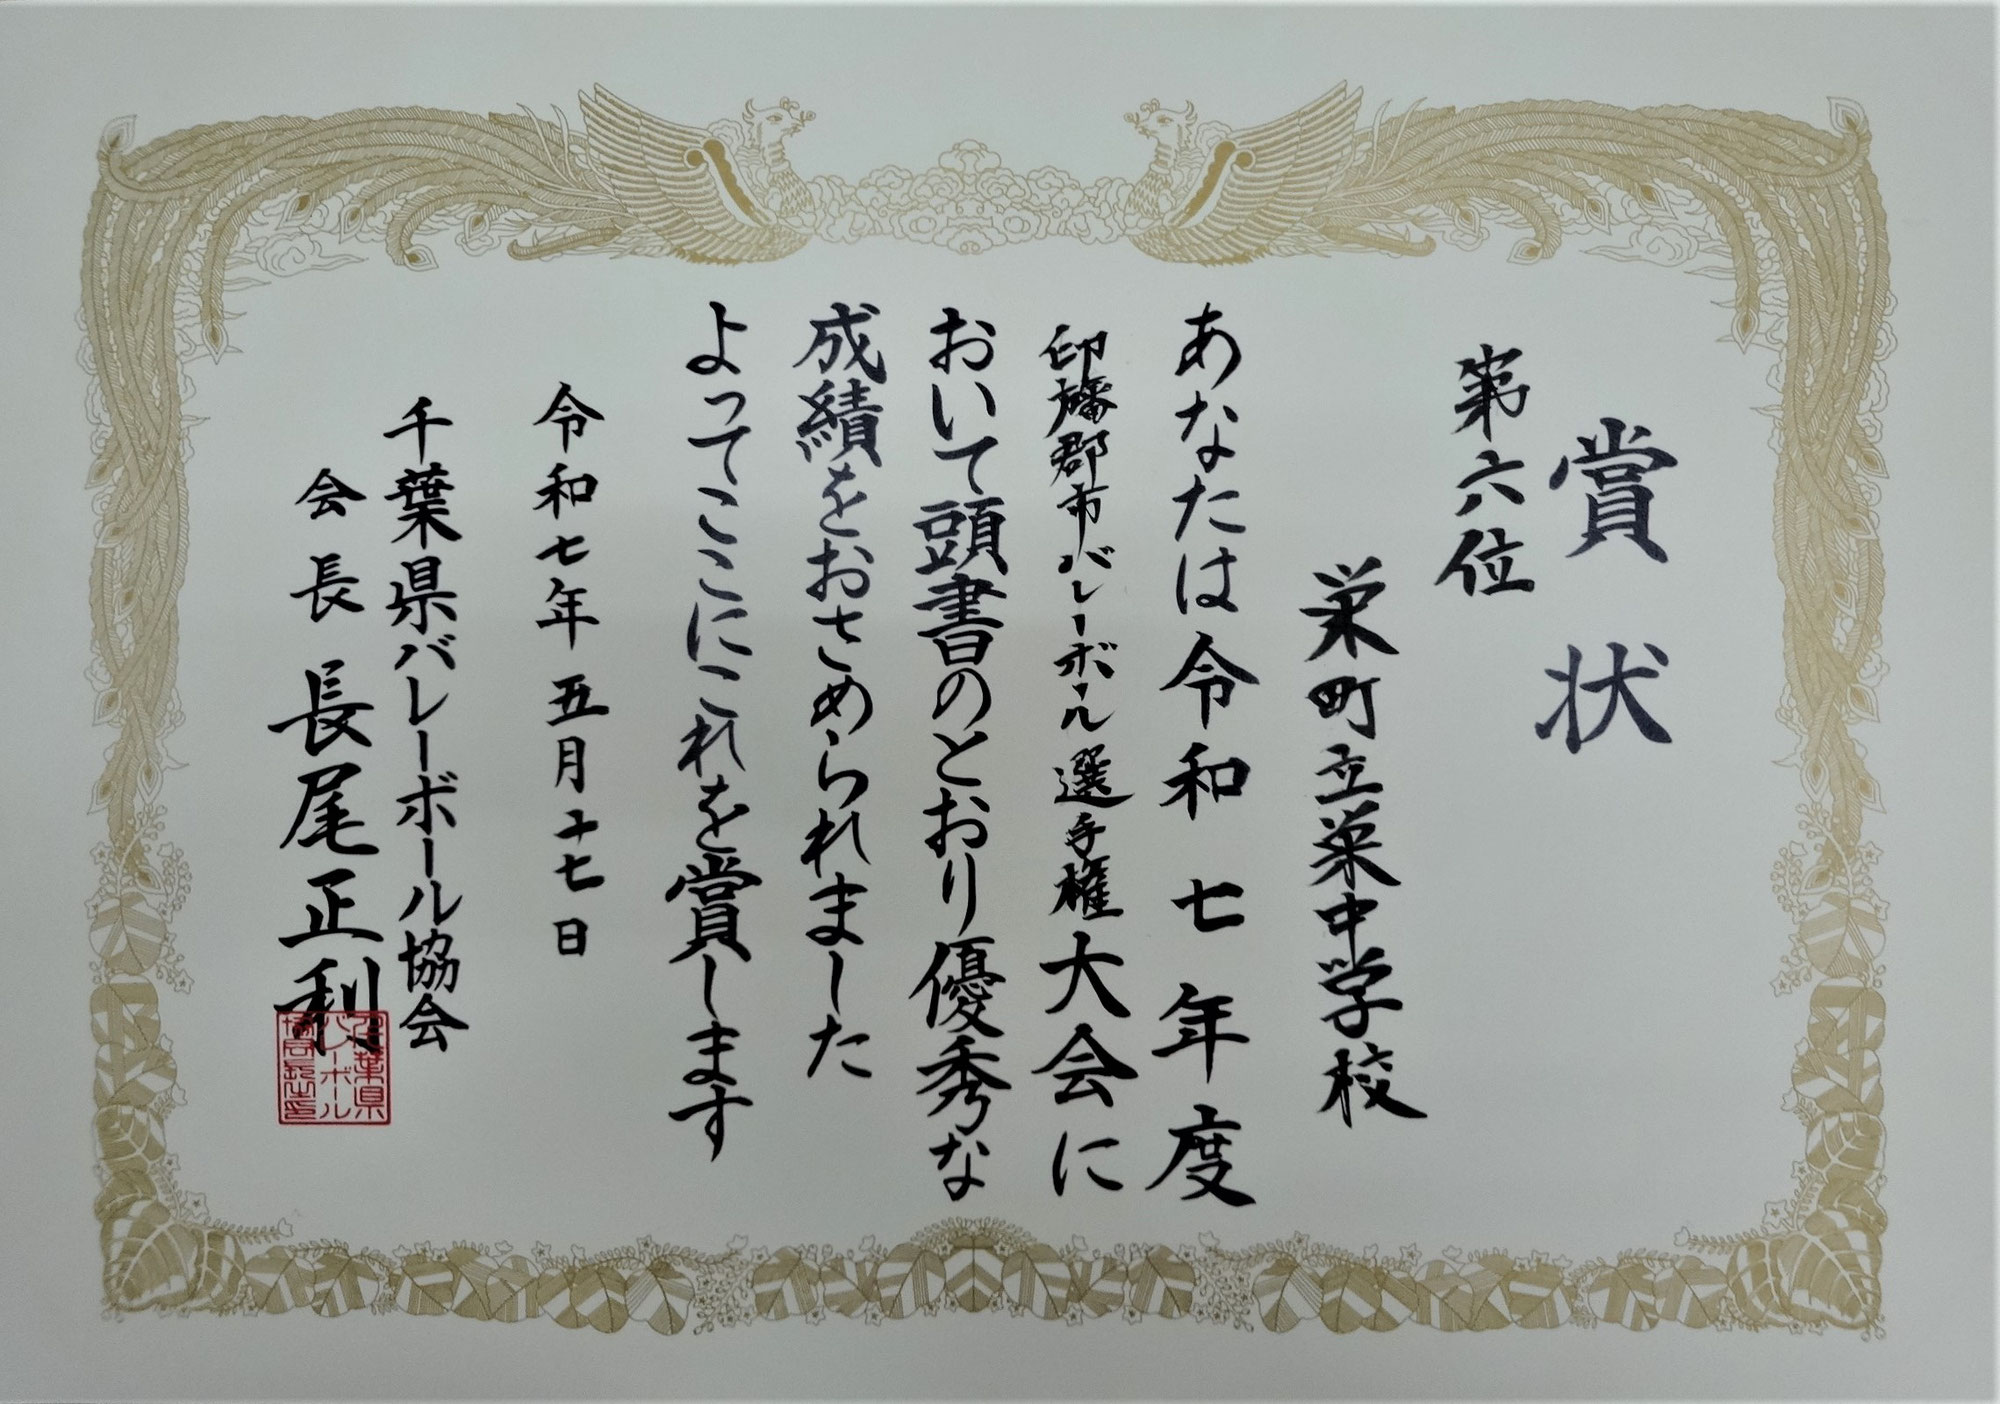 賞状
第六位
栄町立栄中学校
あなたは令和七年度
印旛郡市バレーボール選手権大会に
おいて頭書のとおり優秀な
成績をおさめられました
よってここにこれを賞します
令和七年五月十七日
千葉県バレーボール協会
会長 長尾正利
千葉県
バレーボール
協会長之印